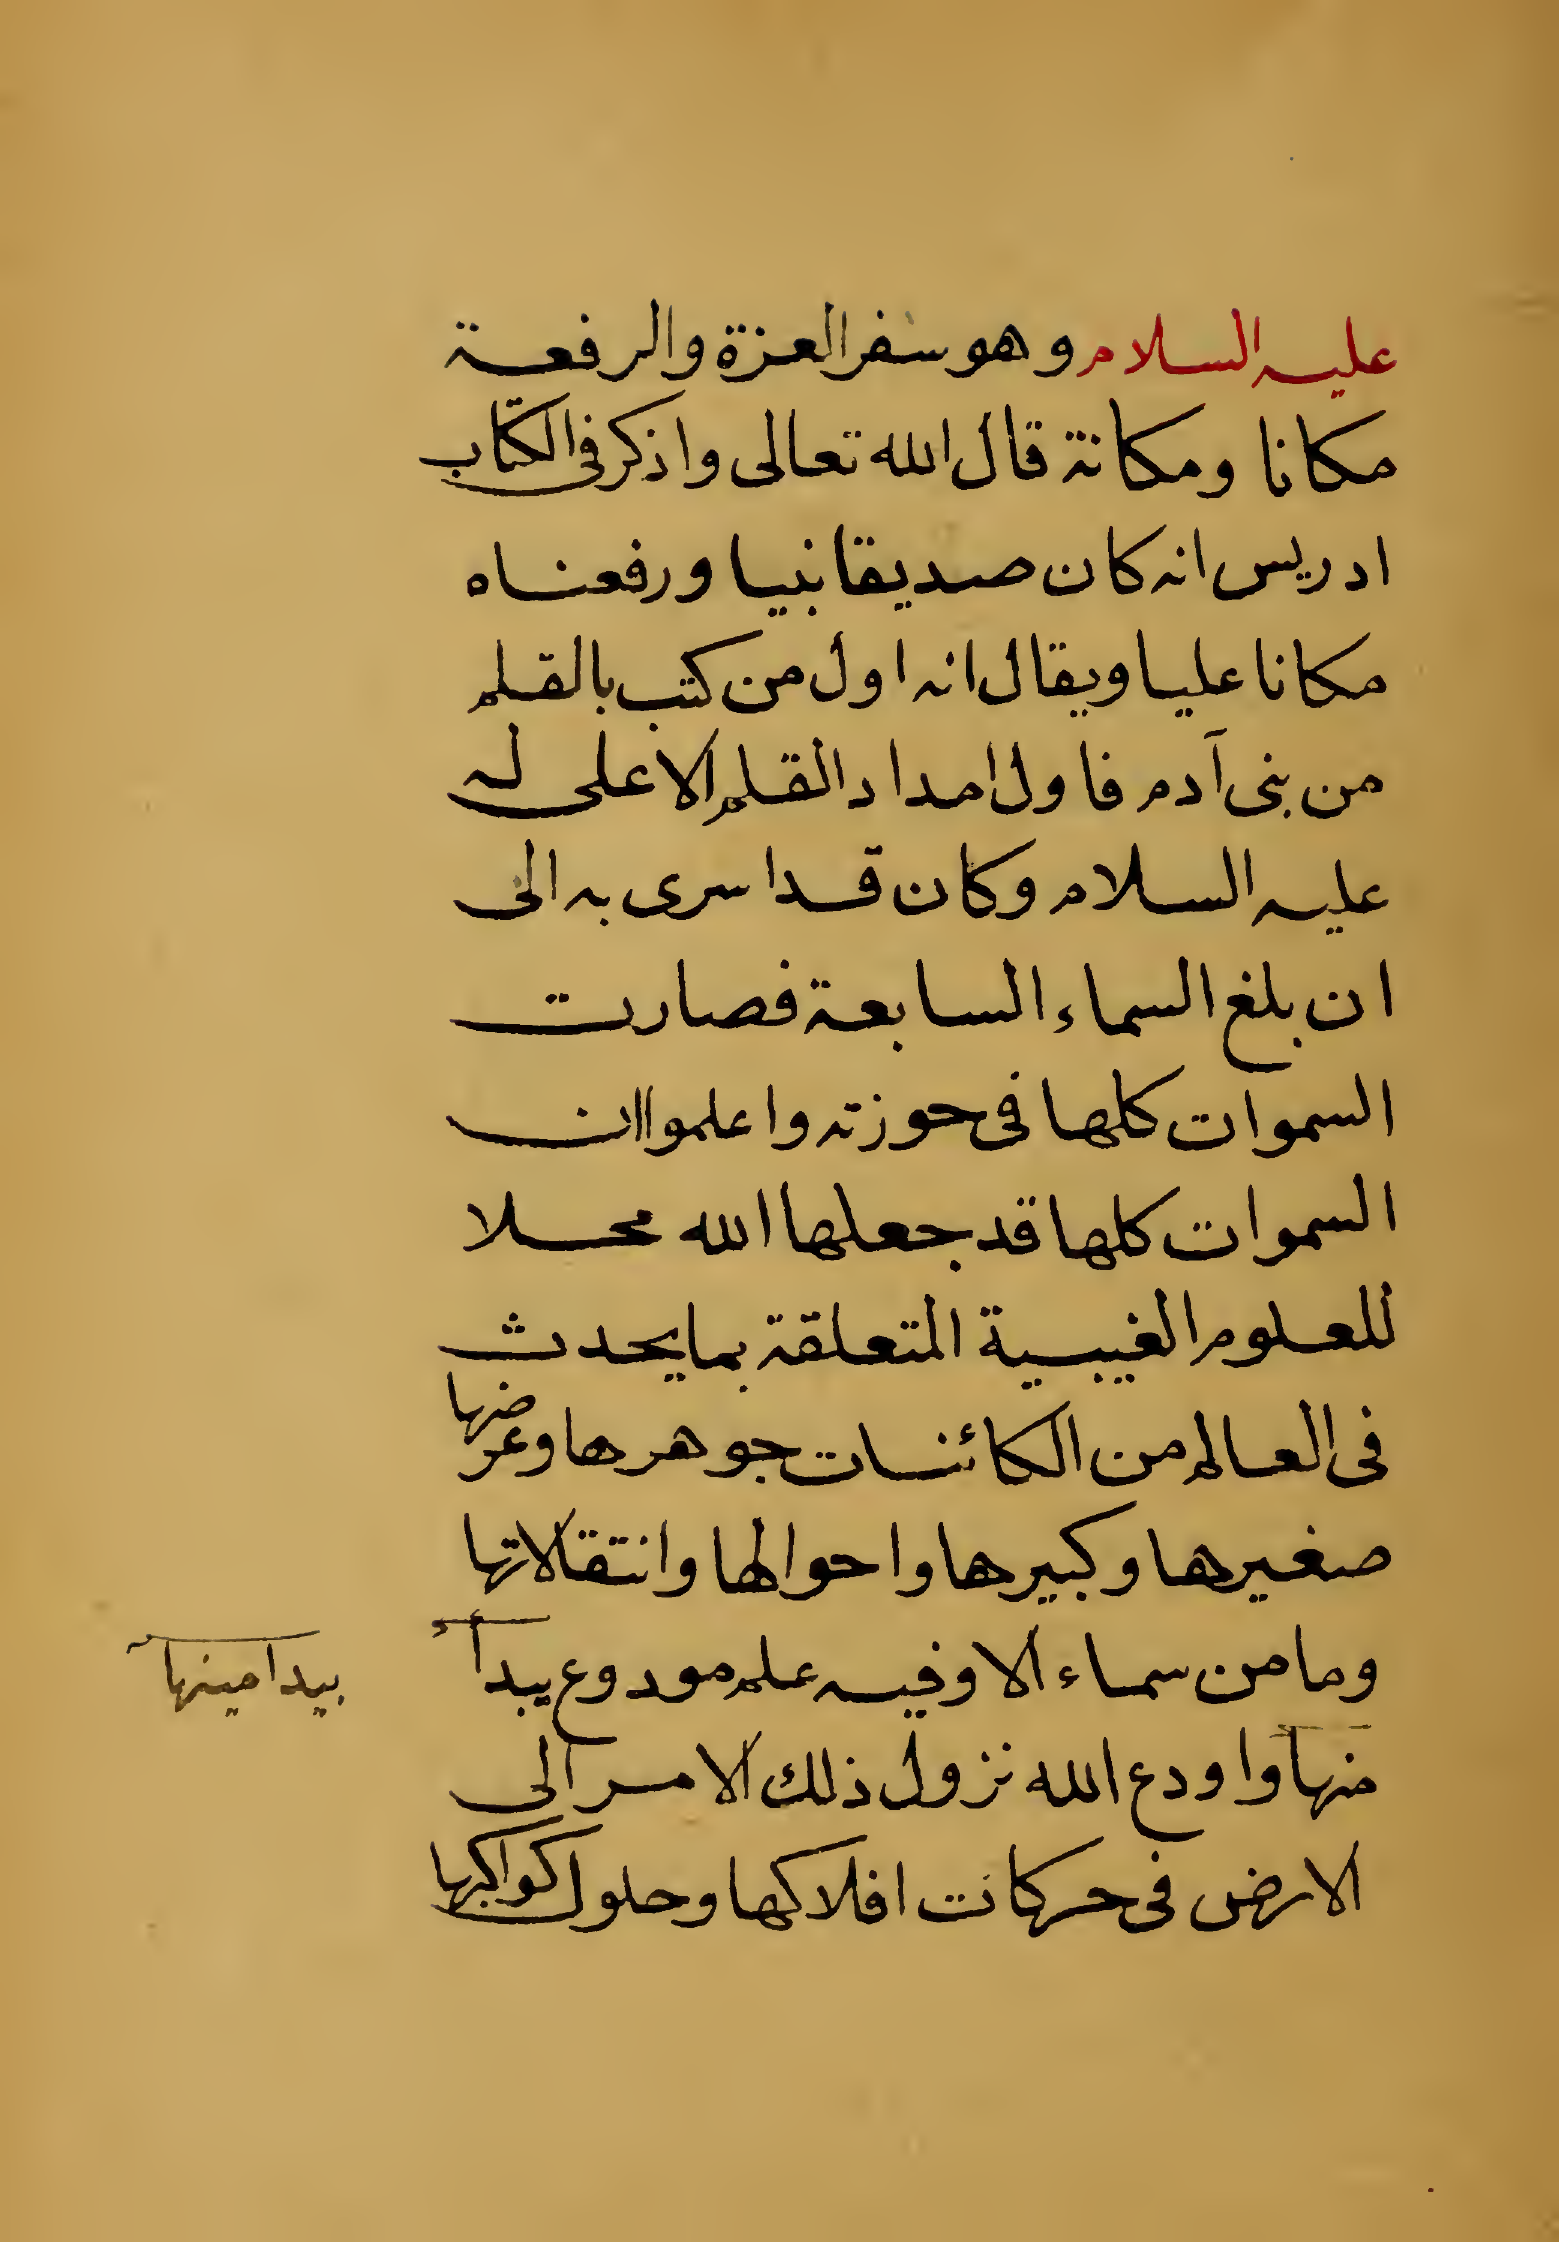 عليه السلام وهو سفر العزة والرفعة
مكانا ومكانة قال الله تعالى واذكر فى الكتاب
ادريس انه كان صديقا نبيا ورفعناه
مكانا عليا ويقال انه اول من كتب بالقلم
من بنى آدم فاول امداد القلم الاعلى له
عليه السلام وكان قد اسرى به الى
ان بلغ السماء السابعة فصارت
السموات كلها فى حوزته واعلموا ان
السموات كلها قد جعلها الله محلا
للعلوم الغيبية المتعلقة بما يحدث
فى العالم من الكائنات جوهرها وعرضها
صغيرها وكبيرها واحوالها وانتقالاتها
وما من سماء الا وفيه علم مودوع يبدا
منها واودع الله نزول ذلك الامر الى
الارض فى حركات افلاكها وحلول كواكبها
بيد امينها